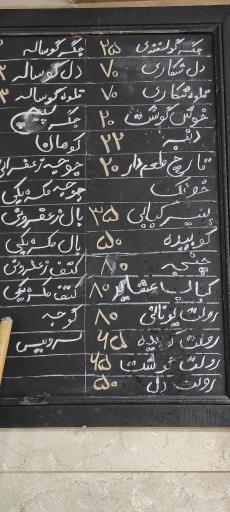 جگر گوسفندی ۲۵ جگر گوساله
دل شکاری ۷۰ دل گوساله ۳
قلوه شکاری ۷۰ قلوه گوساله ۳
خوش گوشت ۲۰ جگر پیچ
دنبه ۲۲
قارچ طعم دار ۲۰ جوجه زعفرانی
جوجه مکزیکی
پنیر کبابی ۳۵ بال زعفرونی
کوبیده ۵۰ بال مکزیکی
چنجه ۸۰ کتف زعفرونی
کباب عشایر ۸۰ کتف مکزیکی
رولت یونانی ۸۰ گوجه
رولت کوبیده ۴۵ سرویس
رولت گوشت ۴۵
رولت دل ۵۰